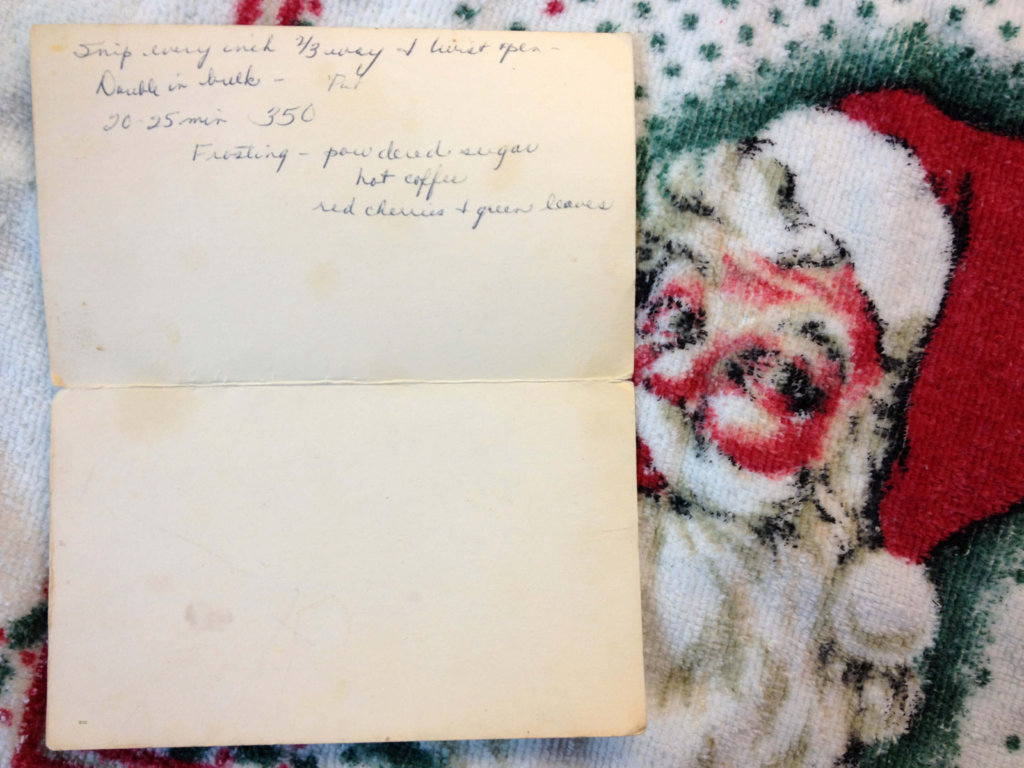 Snip every inch 2/3 way & twist open -
Double in bulk - Put
20-25 min 350
Frosting - powdered sugar
hot coffee
red cherries & green leaves